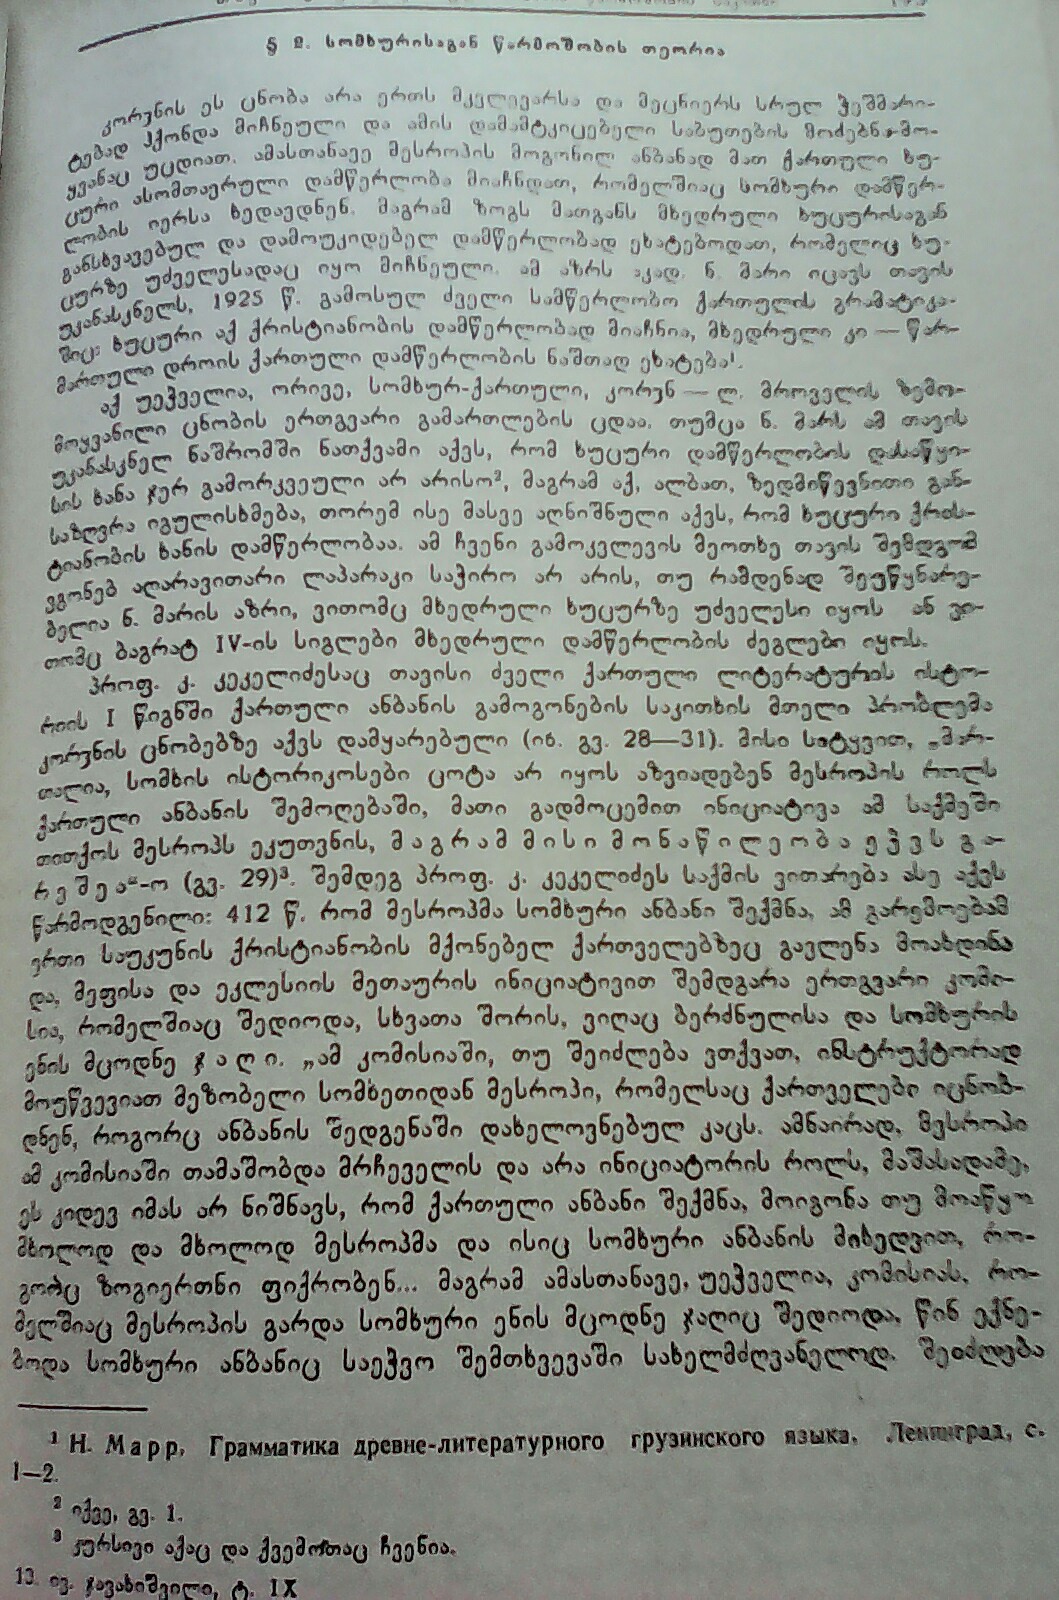 § 2. სომხურისაგან წარმოშობის თეორია
კორჳნის ეს ცნობა არა ერთს მკვლევარსა და მეცნიერს სრულ ჭეშმარი-
ტებად ჰქონდა მიჩნეული და ამის დამამტკიცებელი საბუთების მოძებნა-მო-
ყვანაც უცდიათ. ამასთანავე მესროპის მოგონილ ანბანად მათ ქართული ხუ-
ცური ასომთავრული დამწერლობა მიაჩნდათ, რომელშიაც სომხური დამწერ-
ლობის იერსა ხედავდნენ. მაგრამ ზოგს მათგანს მხედრული ხუცურისაგან
განსხვავებულ და დამოუკიდებელ დამწერლობად ეხატებოდათ, რომელიც ხუ-
ცურზე უძველესადაც იყო მიჩნეული. ამ აზრს აკად. ნ. მარი იცავს თავის
უკანასკნელს, 1925 წ. გამოსულ ძველი სამწერლობო ქართულის გრამატიკა-
შიც: ხუცური აქ ქრისტიანობის დამწერლობად მიაჩნია, მხედრული კი — წარ-
მართული დროის ქართული დამწერლობის ნაშთად ეხატება¹.
აქ უეჭველია, ორივე, სომხურ-ქართული, კორჳნ — ლ. მროველის ზემო-
მოყვანილი ცნობის ერთგვარი გამართლების ცდაა. თუმცა ნ. მარს ამ თავის
უკანასკნელ ნაშრომში ნათქვამი აქვს, რომ ხუცური დამწერლობის დასაწყი-
სის ხანა ჯერ გამორკვეული არ არისო², მაგრამ აქ, ალბათ, ზედმიწევნითი გან-
საზღვრა იგულისხმება, თორემ ისე მასვე აღნიშნული აქვს, რომ ხუცური ქრის-
ტიანობის ხანის დამწერლობაა. ამ ჩვენი გამოკვლევის მეოთხე თავის შემდგომ
ვგონებ აღარავითარი ლაპარაკი საჭირო არ არის, თუ რამდენად შეუწყნარე-
ბელია ნ. მარის აზრი, ვითომც მხედრული ხუცურზე უძველესი იყოს ან ვი-
თომც ბაგრატ IV-ის სიგლები მხედრული დამწერლობის ძეგლები იყოს.
პროფ. კ. კეკელიძესაც თავისი ძველი ქართული ლიტერატურის ისტო-
რიის I წიგნში ქართული ანბანის გამოგონების საკითხის მთელი პრობლემა
კორჳნის ცნობებზე აქვს დამყარებული (იხ. გვ. 28—31). მისი სიტყვით, „მარ-
თალია, სომხის ისტორიკოსები ცოტა არ იყოს აზვიადებენ მესროპის როლს
ქართული ანბანის შემოღებაში, მათი გადმოცემით ინიციატივა ამ საქმეში
თითქოს მესროპს ეკუთვნის, მ ა გ რ ა მ მ ი ს ი მ ო ნ ა წ ი ლ ე ო ბ ა ე ჭ ვ ს გ ა -
რ ე შ ე ა“-ო (გვ. 29)³. შემდეგ პროფ. კ. კეკელიძეს საქმის ვითარება ასე აქვს
წარმოდგენილი: 412 წ. რომ მესროპმა სომხური ანბანი შექმნა, ამ გარემოებამ
ერთი საუკუნის ქრისტიანობის მქონებელ ქართველებზეც გავლენა მოახდინა
და, მეფისა და ეკლესიის მეთაურის ინიციატივით შემდგარა ერთგვარი კომი-
სია, რომელშიაც შედიოდა, სხვათა შორის, ვიღაც ბერძნულისა და სომხურის
ენის მცოდნე ჯ ა ღ ი. „ამ კომისიაში, თუ შეიძლება ვთქვათ, ინსტრუქტორად
მოუწვევიათ მეზობელი სომხეთიდან მესროპი, რომელსაც ქართველები იცნობ-
დნენ, როგორც ანბანის შედგენაში დახელოვნებულ კაცს. ამნაირად, მესროპი
ამ კომისიაში თამაშობდა მრჩეველის და არა ინიციატორის როლს, მაშასადამე,
ეს კიდევ იმას არ ნიშნავს, რომ ქართული ანბანი შექმნა, მოიგონა თუ მოაწყო
მხოლოდ და მხოლოდ მესროპმა და ისიც სომხური ანბანის მიხედვით, რო-
გორც ზოგიერთნი ფიქრობენ... მაგრამ ამასთანავე, უეჭველია, კომისიას, რო-
მელშიაც მესროპის გარდა სომხური ენის მცოდნე ჯაღიც შედიოდა, წინ ექნე-
ბოდა სომხური ანბანიც საეჭვო შემთხვევაში სახელმძღვანელოდ. შეიძლება
¹ Н. Марр, Грамматика древне-литературного грузинского языка, Ленинград, с.
1—2.
² იქვე, გვ. 1.
³ კურსივი აქაც და ქვემოთაც ჩვენია.
13. ივ. ჯავახიშვილი, ტ. IX